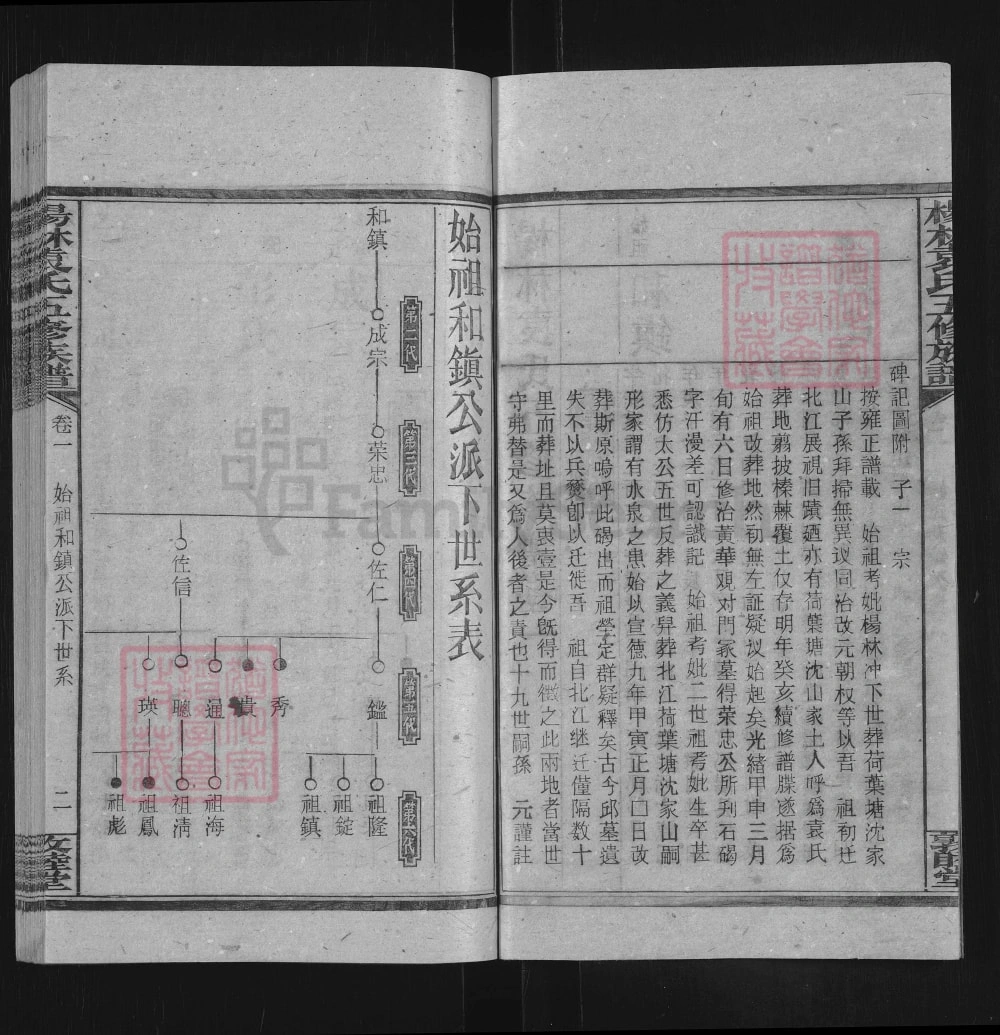 楊林袁氏五修族譜
敦睦堂
碑記圖附 子一 宗
按雍正譜載 始祖考妣楊林冲下世葬荷葉塘沈家
山子孫拜掃無異议同治改元朝权等以吾 祖初迁
北江展視旧蹟廼亦有荷葉塘沈山家土人呼爲袁氏
葬地翦披榛棘覆土仅存明年癸亥續修譜牒遂据爲
始祖改葬地然初無左証疑议始起矣光緒甲申三月
旬有六日修治黃華观对門冢墓得荣忠公所刋石碣
字汗漫差可認識記 始祖考妣二世祖考妣生卒甚
悉仿太公五世反葬之義舁葬北江荷葉塘沈家山嗣
形家謂有水泉之患始以宣德九年甲寅正月囗日改
葬斯原嗚呼此碣出而祖塋定群疑釋矣古今邱墓遺
失不以兵燹卽以迁徙吾 祖自北江继迁僅隔数十
里而葬址且莫衷壹是今旣得而徵之此兩地者當世
守弗替是又爲人後者之責也十九世嗣孫 元謹註
始祖和鎮公派下世系表
第二代
第三代
第四代
第五代
第六代
和鎮
成宗
荣忠
佐仁
佐信
鑑
秀
貴
通
聰
瑛
祖隆
祖錠
祖鎮
祖海
祖淸
祖鳳
祖彪
楊林袁氏五修族譜
卷一
始祖和鎮公派下世系
二
敦睦堂